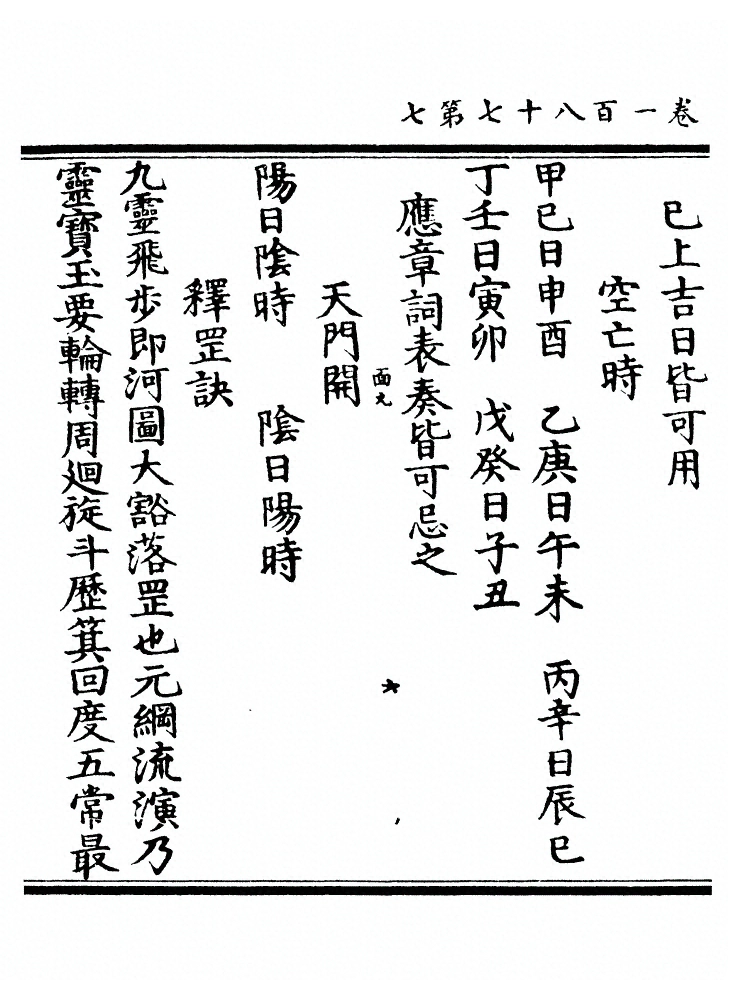 卷一百八十七第七
已上吉日皆可用
空亡時
甲己日申酉　乙庚日午未　丙辛日辰巳
丁壬日寅卯　戊癸日子丑
應章詞表奏皆可忌之
天門開
陽日陰時　陰日陽時
釋罡訣
九靈飛步即河圖大豁落罡也元綱流演乃
靈寶玉要輪轉周迴旋斗歷箕回度五常最